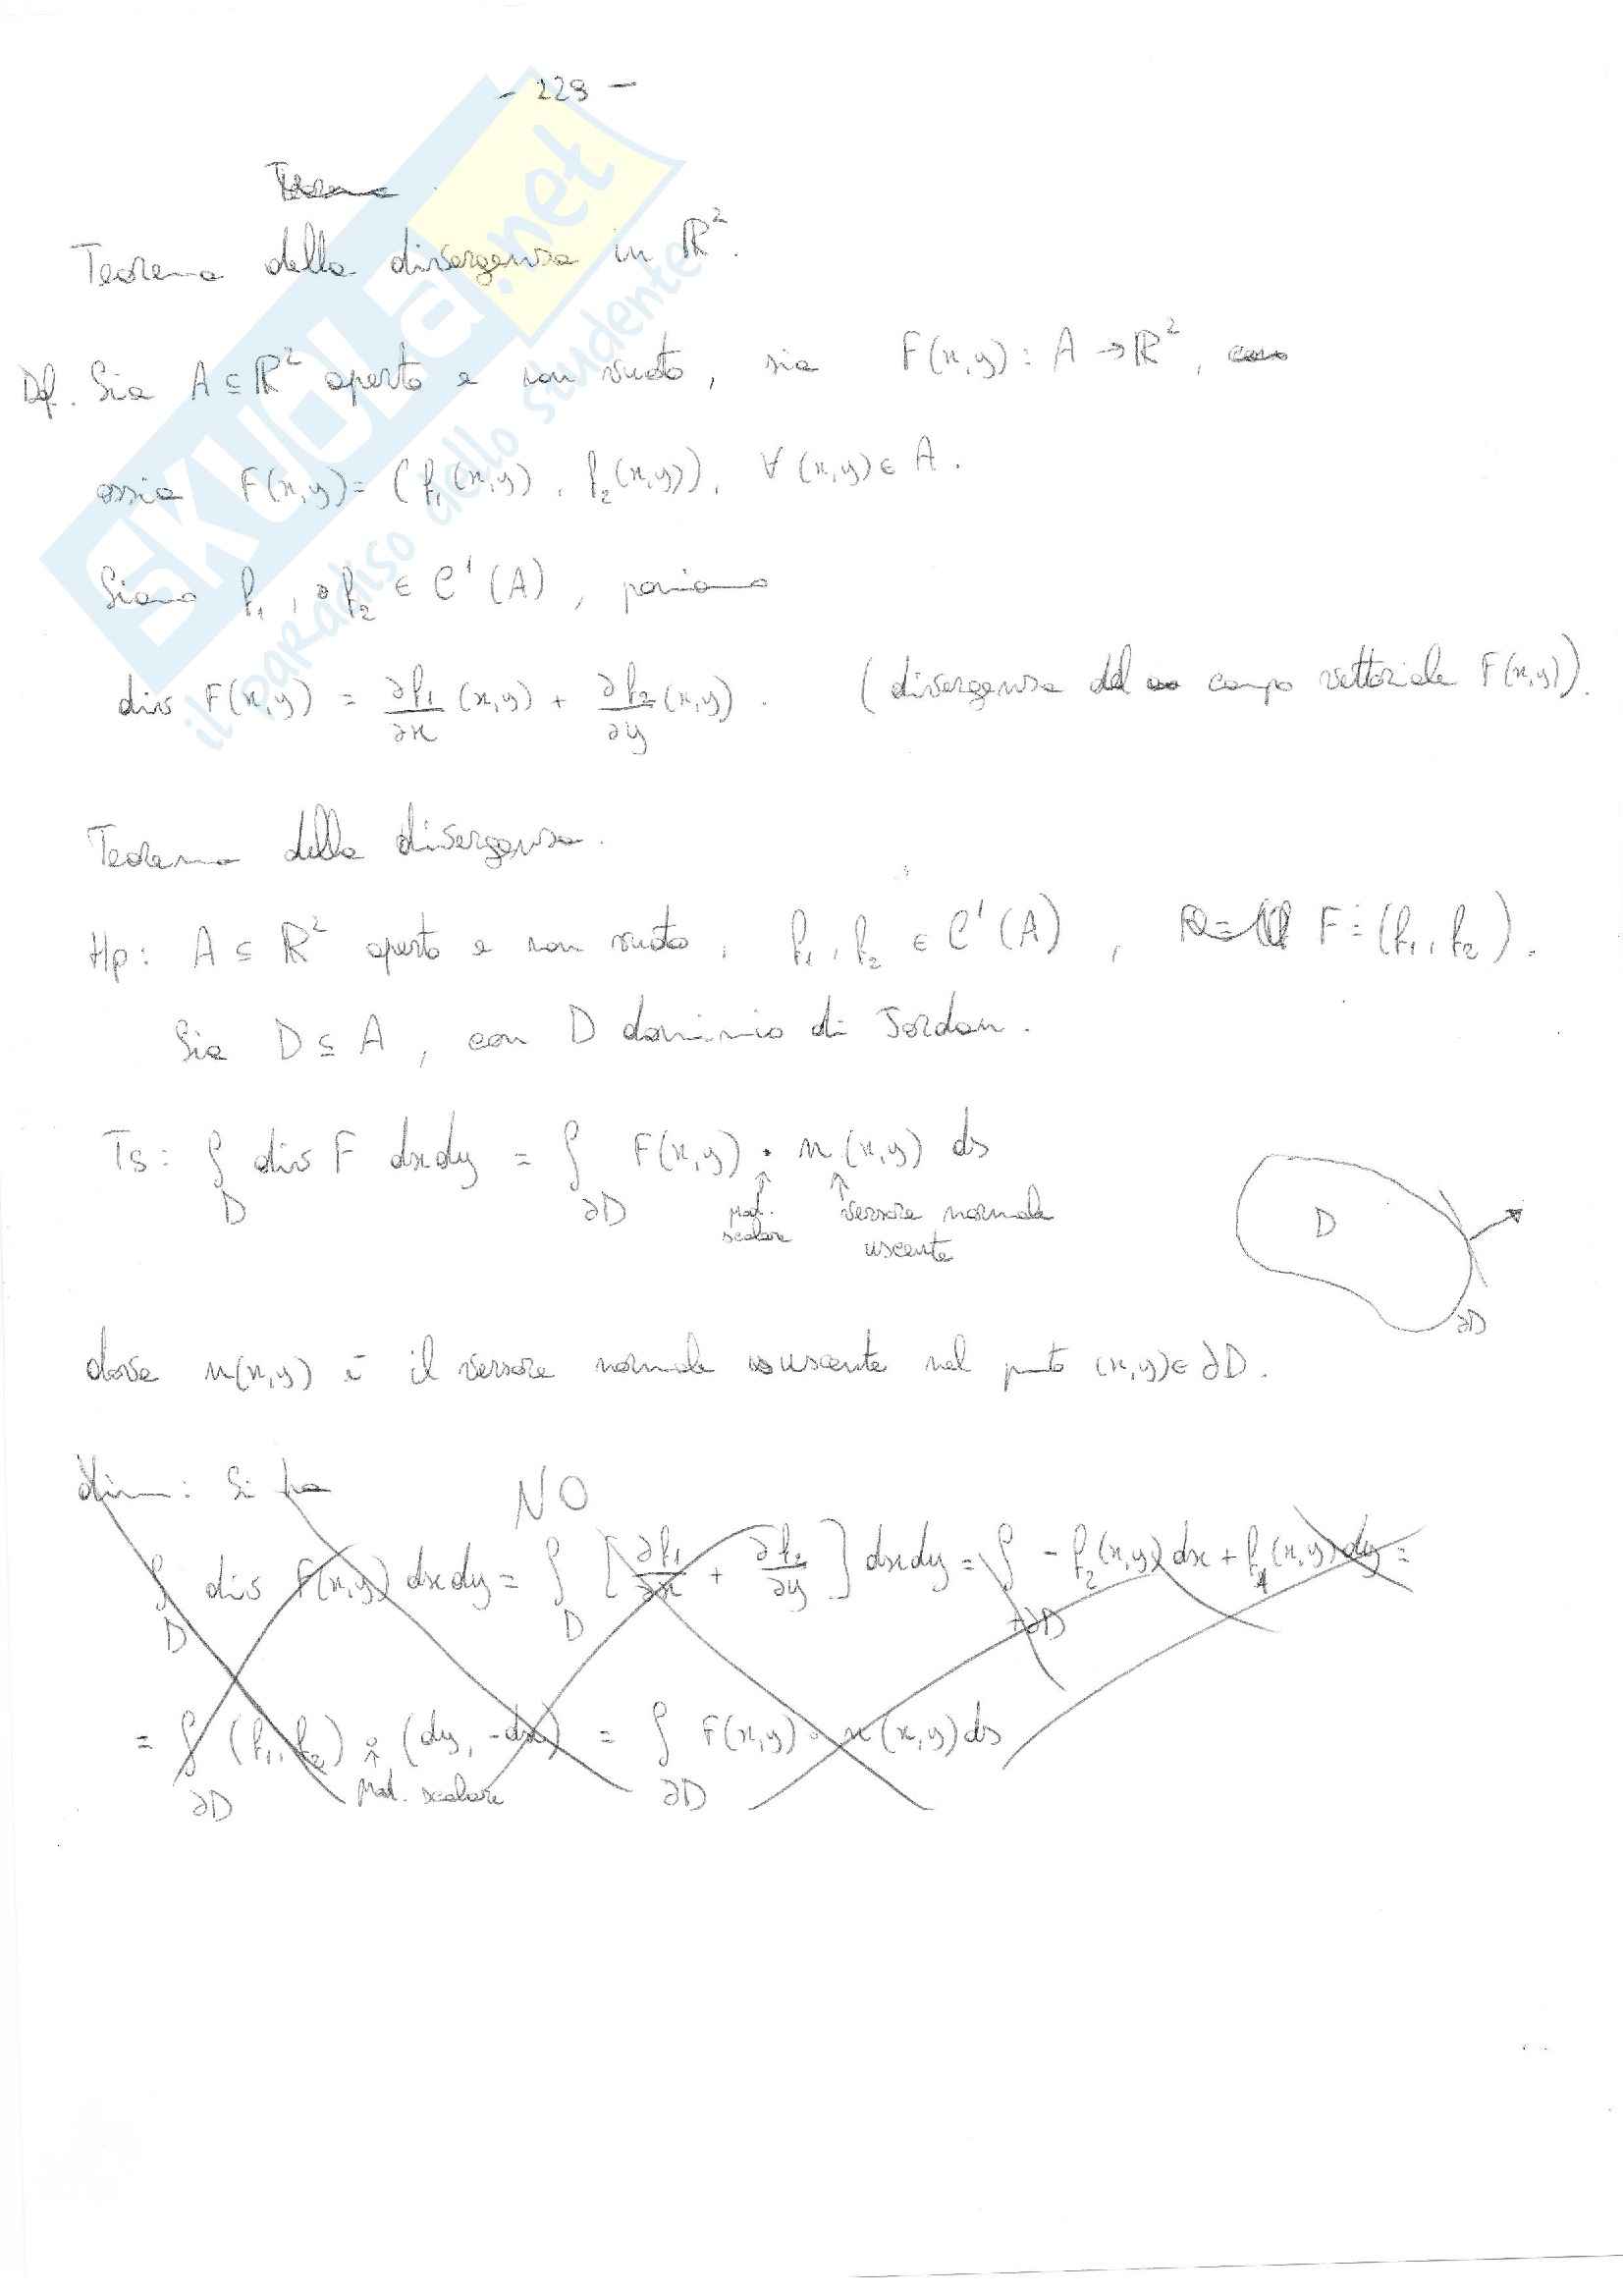 - 229 -
Teorema
Teorema della divergenza in ℝ².
Df. Sia A ⊆ ℝ² aperto e non vuoto, sia F(x,y) : A → ℝ²,
ossia F(x,y) = (f₁(x,y), f₂(x,y)), ∀ (x,y) ∈ A.
Siano f₁, f₂ ∈ C¹(A), poniamo
div F(x,y) = ∂f₁/∂x (x,y) + ∂f₂/∂y (x,y). (divergenza del campo vettoriale F(x,y)).
Teorema della divergenza.
Hp: A ⊆ ℝ² aperto e non vuoto, f₁, f₂ ∈ C¹(A), F = (f₁, f₂).
Sia D ⊆ A, con D dominio di Jordan.
Ts: ∫_D div F dxdy = ∫_∂D F(x,y) · n(x,y) ds
↑ ↑
prod. scalare
versore normale uscente
D
∂D
dove n(x,y) è il versore normale uscente nel punto (x,y) ∈ ∂D.
dim: Si ha
NO
∫_D div F(x,y) dxdy = ∫_D [∂f₁/∂x + ∂f₂/∂y] dxdy = ∫_+∂D - f₂(x,y) dx + f₁(x,y) dy =
= ∫_∂D (f₁, f₂) · (dy, -dx) = ∫_∂D F(x,y) · n(x,y) ds
↑
prod. scalare
SKUOLA.net
il paradiso dello studente